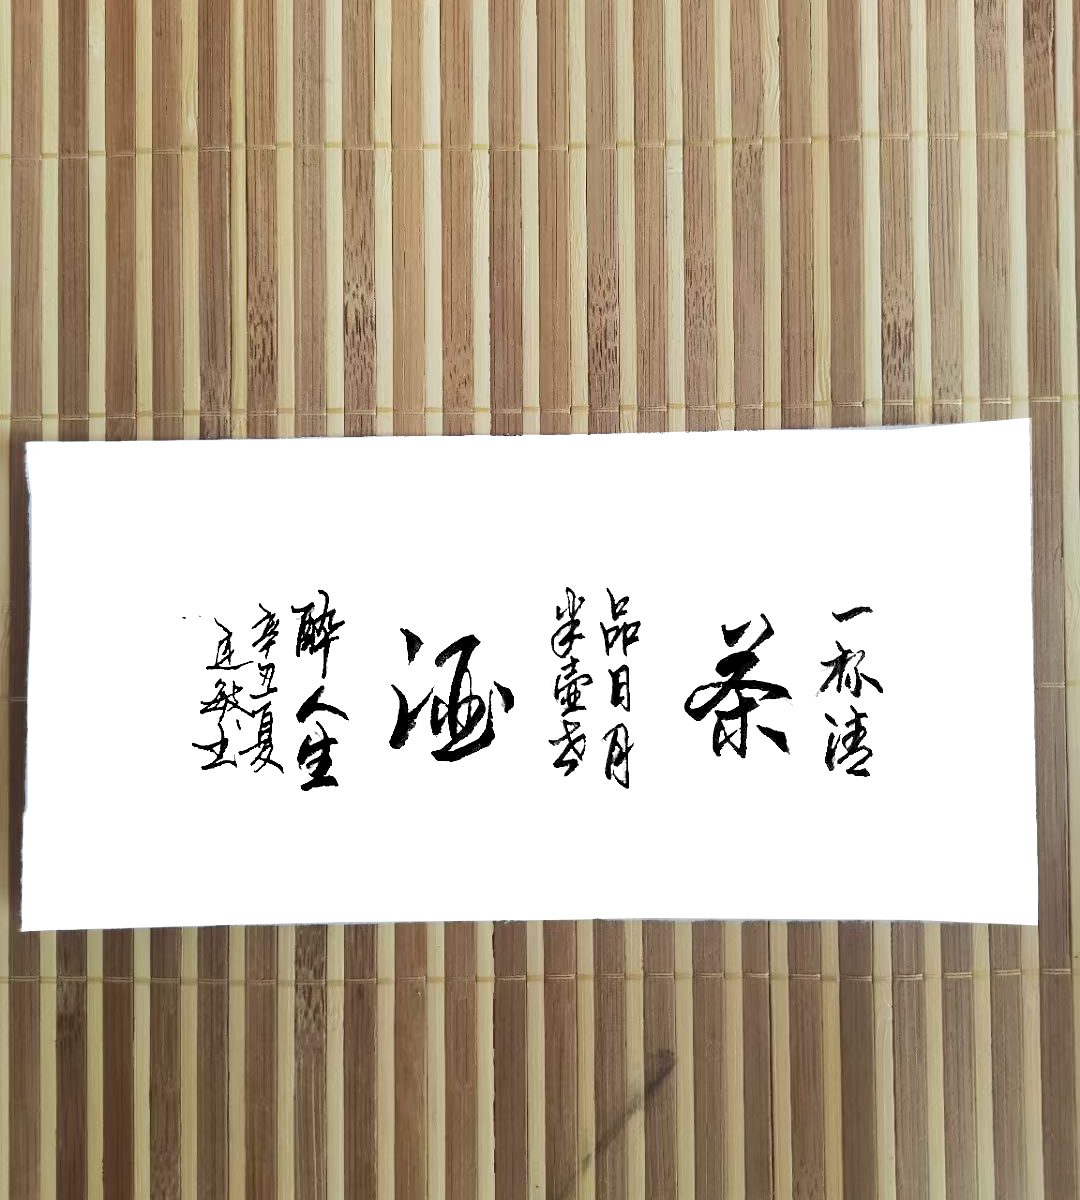 一杯清
茶
品日月
半壶老
酒
醉人生
辛丑夏
连敏书